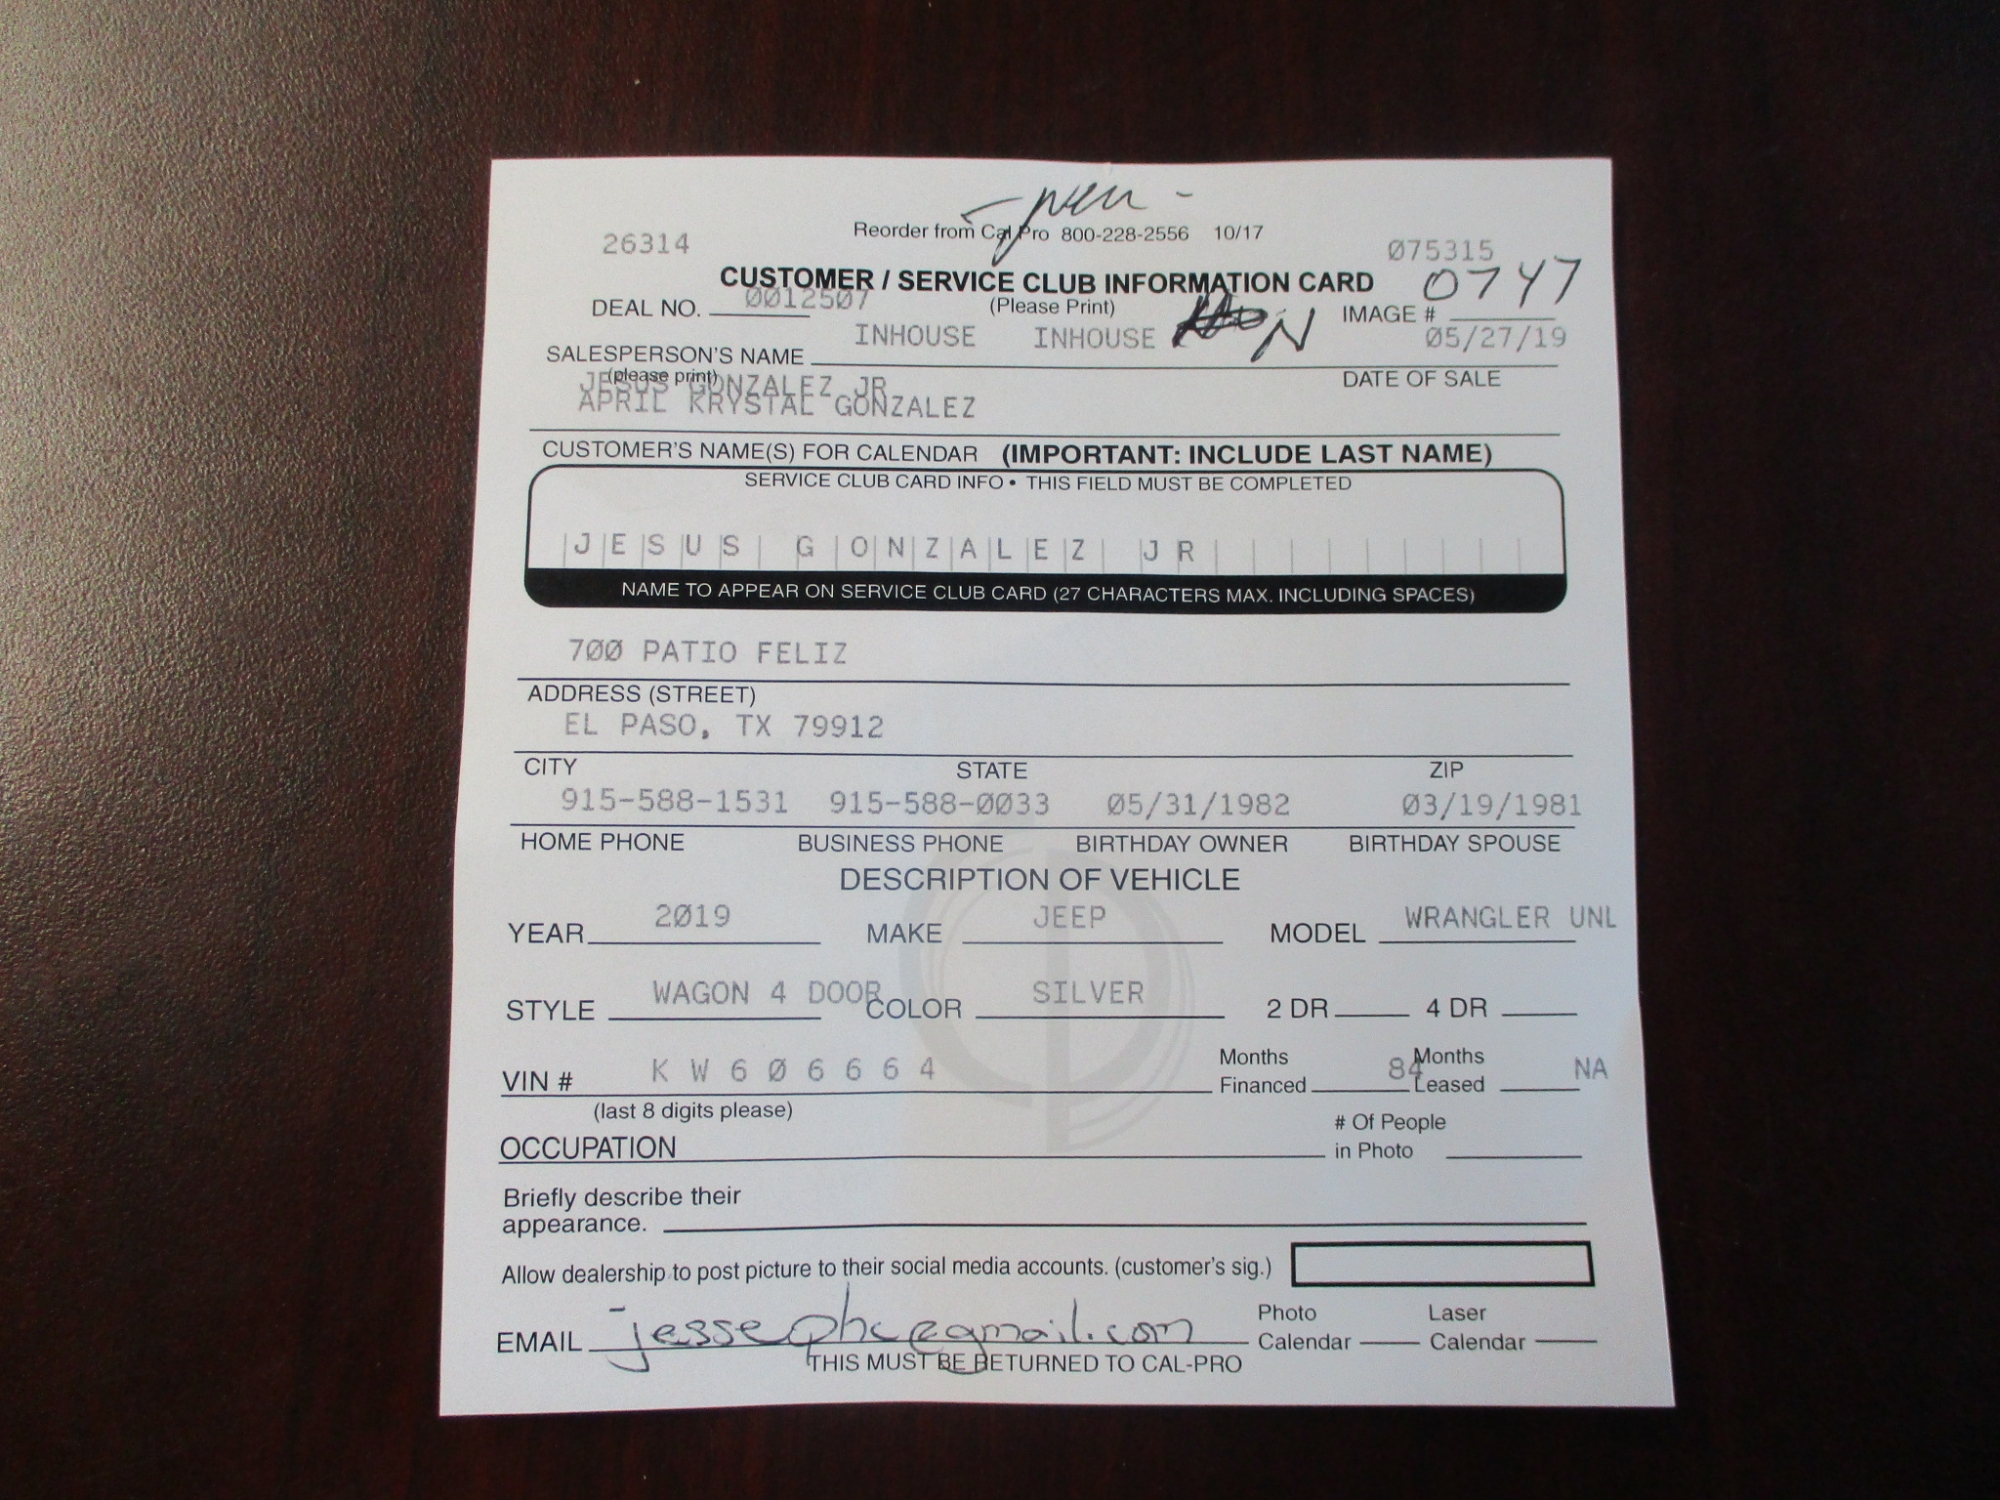 Reorder from Cal Pro 800-228-2556 10/17
26314
Ø75315
CUSTOMER / SERVICE CLUB INFORMATION CARD
0747
DEAL NO. ØØ125Ø7
(Please Print)
IMAGE #
INHOUSE INHOUSE N
Ø5/27/19
SALESPERSON'S NAME
(please print)
DATE OF SALE
JESUS GONZALEZ JR
APRIL KRYSTAL GONZALEZ
CUSTOMER'S NAME(S) FOR CALENDAR (IMPORTANT: INCLUDE LAST NAME)
SERVICE CLUB CARD INFO • THIS FIELD MUST BE COMPLETED
JESUS GONZALEZ JR
NAME TO APPEAR ON SERVICE CLUB CARD (27 CHARACTERS MAX. INCLUDING SPACES)
7ØØ PATIO FELIZ
ADDRESS (STREET)
EL PASO, TX 79912
CITY STATE ZIP
915-588-1531 915-588-ØØ33 Ø5/31/1982 Ø3/19/1981
HOME PHONE BUSINESS PHONE BIRTHDAY OWNER BIRTHDAY SPOUSE
DESCRIPTION OF VEHICLE
YEAR 2Ø19 MAKE JEEP MODEL WRANGLER UNL
STYLE WAGON 4 DOOR COLOR SILVER 2 DR 4 DR
VIN # K W 6 Ø 6 6 6 4 Months Financed 84 Months Leased NA
(last 8 digits please)
OCCUPATION # Of People in Photo
Briefly describe their
appearance.
Allow dealership to post picture to their social media accounts. (customer's sig.)
EMAIL jessephc@gmail.com Photo Calendar Laser Calendar
THIS MUST BE RETURNED TO CAL-PRO